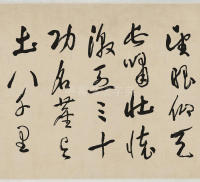 望眼仰天
長嘯壮懐
激烈三十
功名塵與
土八千里